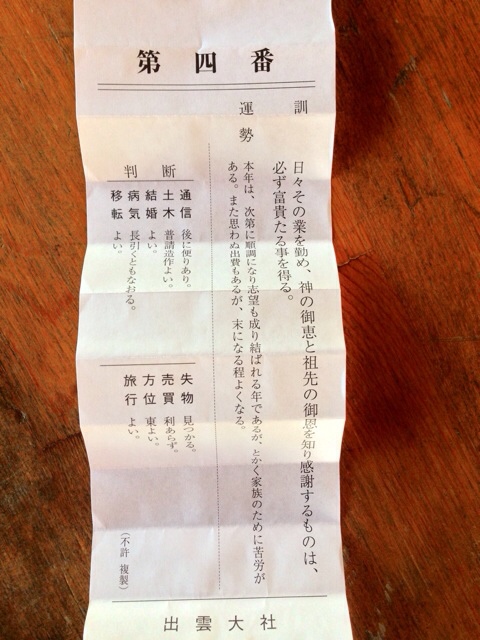 第四番
訓
日々その業を勤め、神の御恵と祖先の御恩を知り感謝するものは、
必ず富貴たる事を得る。
運勢
本年は、次第に順調になり志望も成り結ばれる年であるが、とかく家族のために苦労が
ある。また思わぬ出費もあるが、末になる程よくなる。
判断
通信 後に便りあり。
土木 普請造作よい。
結婚 よい。
病気 長引くともなおる。
移転 よい。
失物 見つかる。
売買 利あらず。
方位 東よい。
旅行 よい。
(不許複製)
出雲大社